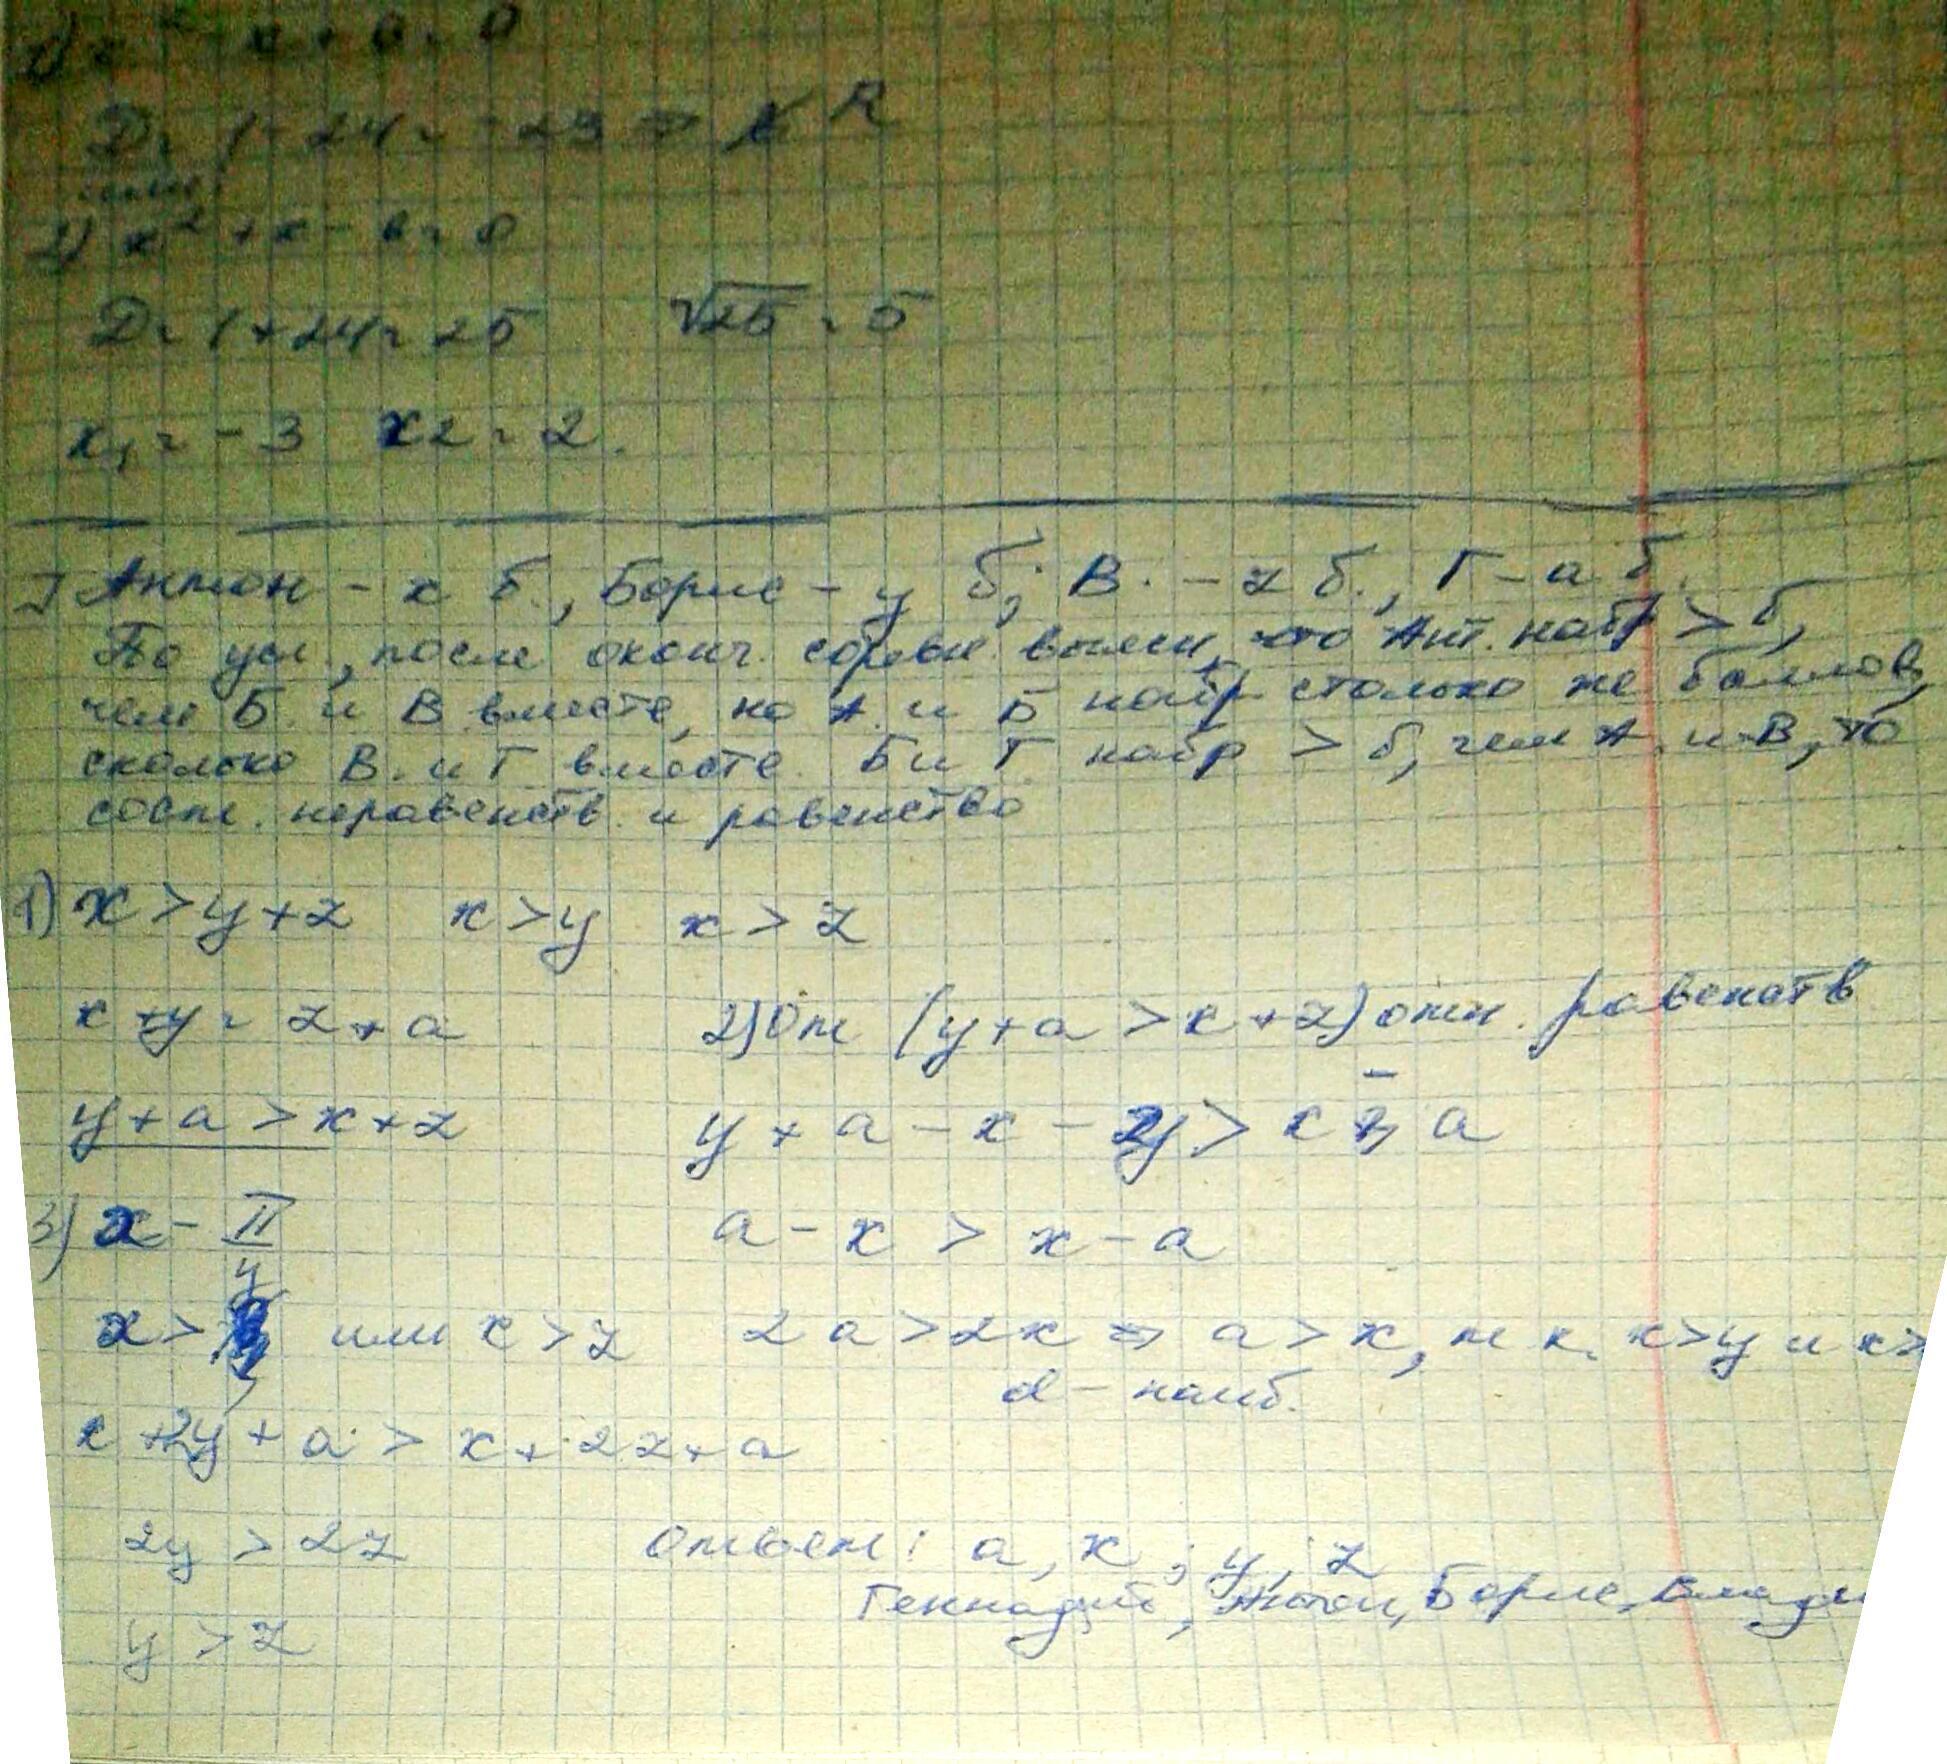 1) x² - x + 6 = 0
D = 1 - 24 = -23 ⇒ R
или
2) x² + x - 6 = 0
D = 1 + 24 = 25 √25 = 5
x₁ = -3 x2 = 2.
Антон - x б., Борис - y б; В. - z б., Г - a б.
По усл, после оконч. соревн. выясн, что Ант. набр > б,
чем Б. и В вместе, но А. и Б набр. столько же баллов,
сколько В. и Г вместе. Б и Г. набр > б, чем А. и В, то
сост. неравенств. и равенство
1) x > y + z x > y x > z
x + y = z + a 2) От (y + a > x + z) отн. равенств
y + a > x + z y + a - x - y > x - a
3) x - II a - x > x - a
x > y или x > z 2a > 2x ⇒ a > x, т к. x > y и x >
a - наиб.
x + 2y + a > x + 2z + a
2y > 2z Ответ: a, x; y, z
Геннадий, Антон, Борис,
y > z